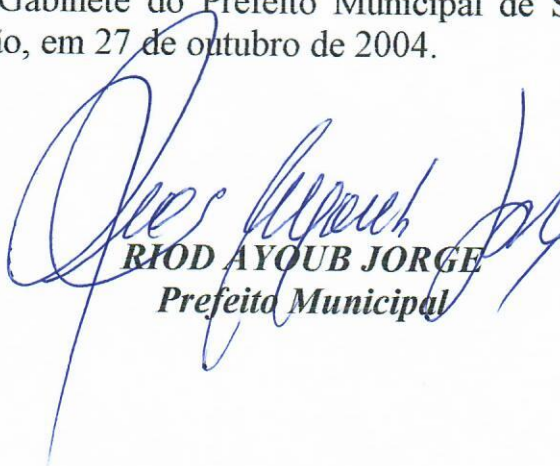 Gabinete do Prefeito Municipal de S
ão, em 27 de outubro de 2004.
RIOD AYOUB JORGE
Prefeito Municipal